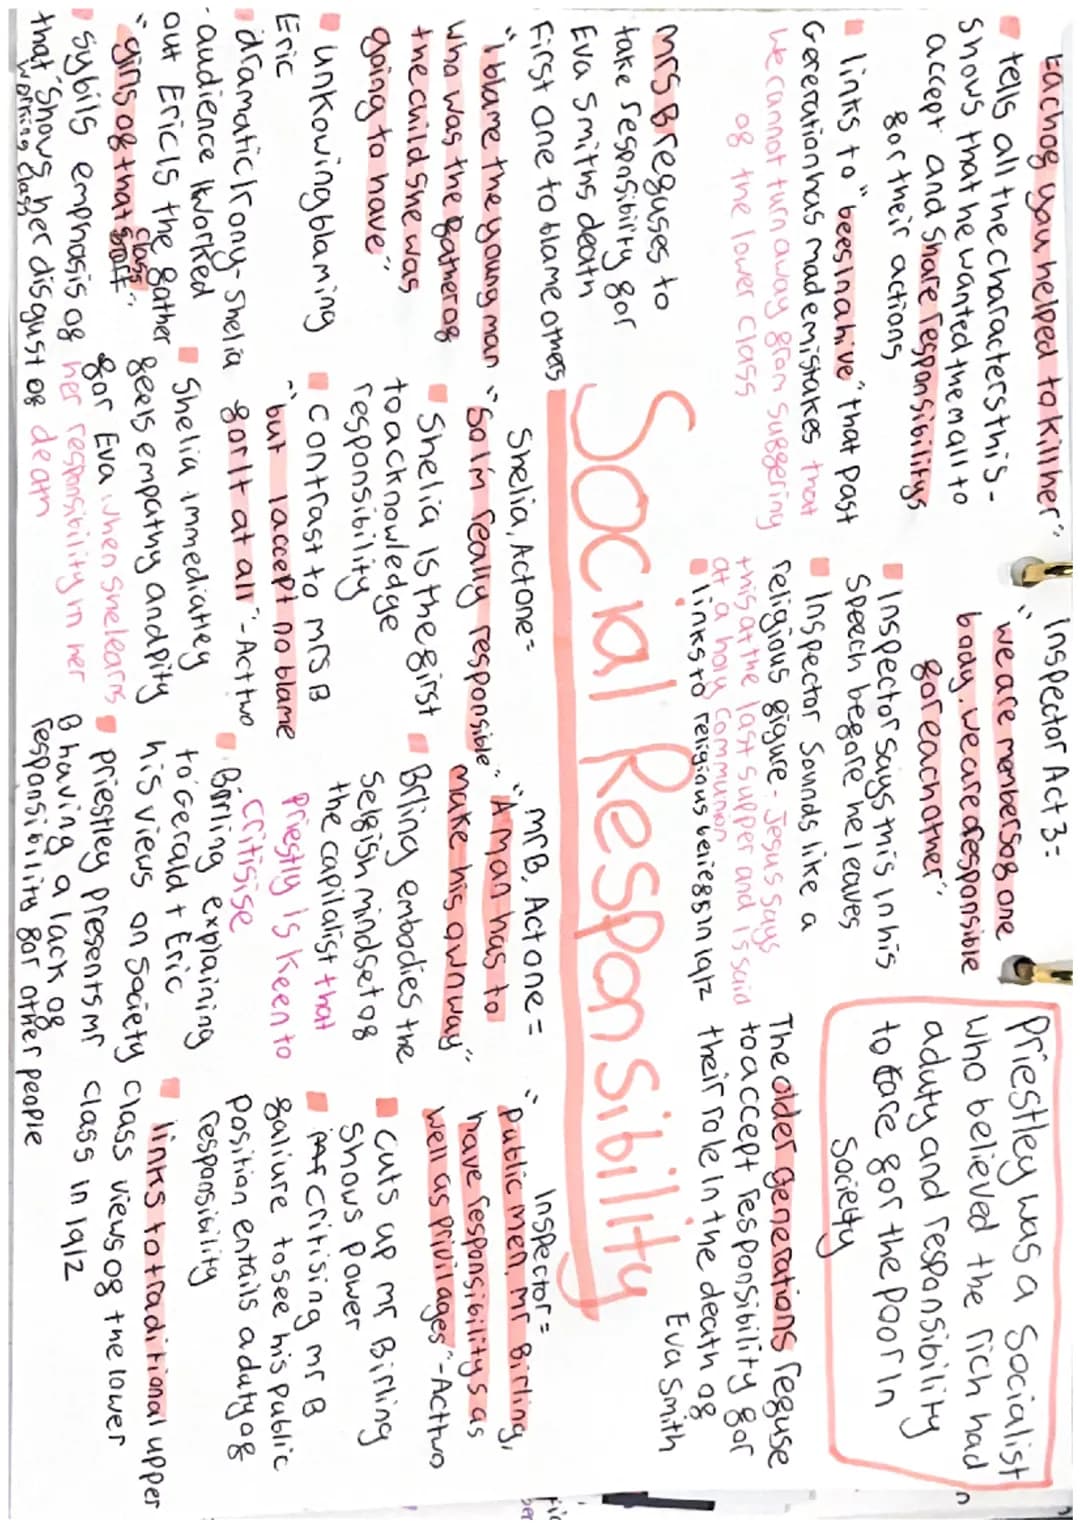 "Each of you helped to kill her"
tells all the characters this -
shows that he wanted them all to
accept and share responsibility
for their actions
links to "bees in a hive" that past
Generation has made mistakes that
we cannot turn away from suffering
of the lower class
Inspector Act 3 =
"we are members of one
body. we are responsible
for eachother"
Inspector says this in his
speech before he leaves
Inspector Sounds like a
religious figure - Jesus says
this at the last supper and is said
at a holy communion
links to religious beliefs in 1912
Priestley was a Socialist
who believed the rich had
a duty and responsibility
to care for the poor in
Society
The older generations refuse
to accept responsibility for
their role in the death of
Eva Smith
Social Responsibility
Mrs B refuses to
take respnsibility for
Eva Smiths death
First one to blame others
"I blame the young man
who was the father of
the child she was
going to have"
unkowing blaming
Eric
dramatic Irony - Shelia
- audience Worked
out Eric Is the father
"girls of that class".
sybils emphasis of
that "Shows her disgust of
working class
Shelia, Act one =
"So Im really responsible"
Shelia is the first
to acknowledge
responsibility
Contrast to mrs B
"but I accept no blame
for It at all" - Act two
Shelia immediatley
feels empathy and pity
for Eva when she learns
her responsibility in her
death
mr B, Act one =
"A man has to
make his own way"
Brling embodies the
selfish mindset of
the capilalist that
Priestly Is keen to
Critisise
Birling explaining
to Gerald + Eric
his views on Society
Priestley presents mr
B having a lack of
responsibility for other people
Inspector =
"Public men, mr Birling,
have responsibilitys as
well as privilages" - Act two
Cuts up mr Birling
Shows power
critising mr B
faliure to see his public
position entails a duty of
responsibility
links to traditional upper
class views of the lower
class in 1912